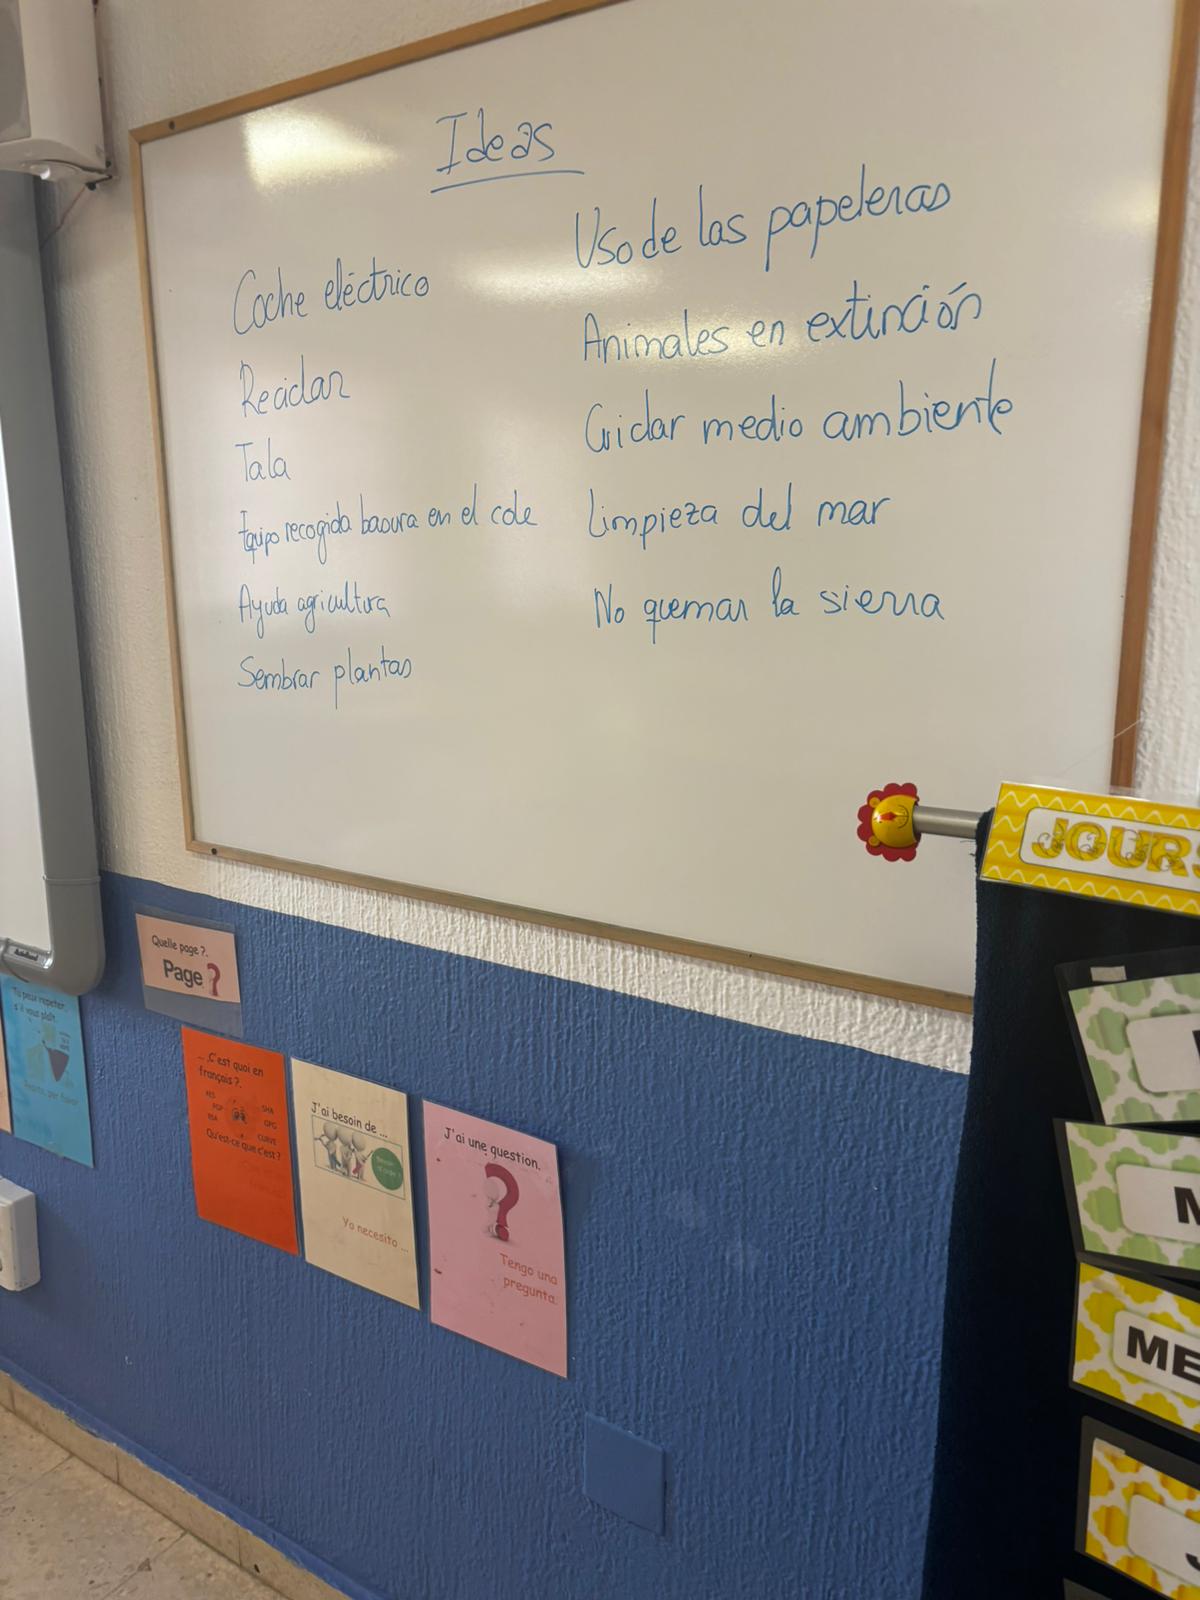 Ideas
Coche eléctrico
Reciclar
Tala
Equipo recogida basura en el cole
Ayuda agricultura
Sembrar plantas
Uso de las papeleras
Animales en extinción
Cuidar medio ambiente
Limpieza del mar
No quemar la sierra
JOURS
Quelle page ?.
Page ?
Tu peux repeter,
s'il vous plaît.
Repite, por favor
... C'est quoi en
français ?.
Qu'est-ce que c'est ?
J'ai besoin de ...
Yo necesito ...
J'ai une question.
Tengo una
pregunta.
M
ME